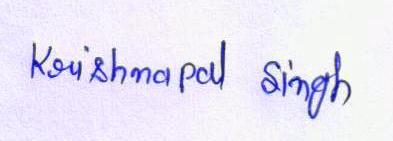 Krishnapal Singh